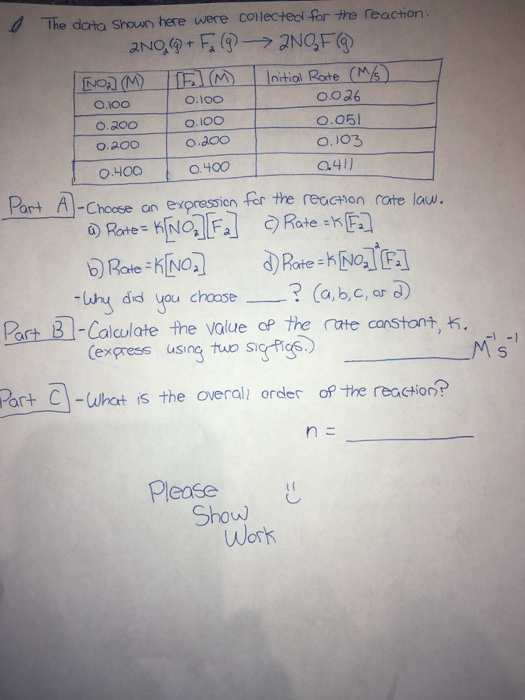 The data shown here were collected for the reaction:
2NO₂(g) + F₂(g) → 2NO₂F(g)
[NO₂] (M) [F₂] (M) Initial Rate (M/s)
0.100 0.100 0.026
0.200 0.100 0.051
0.200 0.200 0.103
0.400 0.400 0.411
Part A - Choose an expression for the reaction rate law.
a) Rate = K[NO₂][F₂] c) Rate = K[F₂]
b) Rate = K[NO₂] d) Rate = K[NO₂]²[F₂]
- Why did you choose ____? (a, b, c, or d)
Part B - Calculate the value of the rate constant, K.
(express using two sig figs.) ________ M⁻¹s⁻¹
Part C - What is the overall order of the reaction?
n = ________
Please
Show
Work